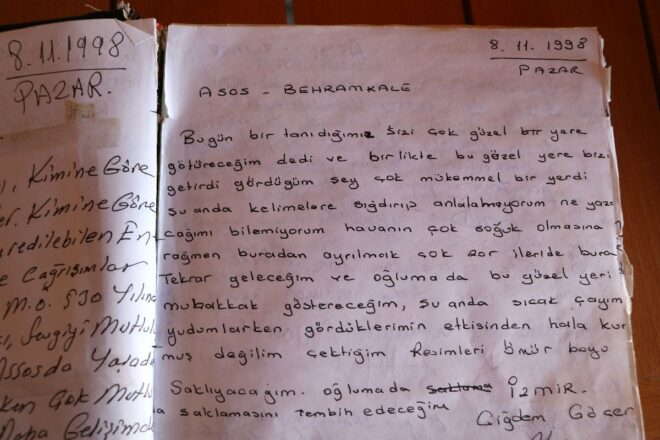 8.11.1998
PAZAR.
Kimine Göre
Kimine Göre
redilebilen En
Çağrışımlar
M.Ö. 530 Yılına
Sevgiyi Mutlulu
Assosda Yaşadı
Çok Mutlu
Daha Gelişimde
8. 11. 1998
PAZAR
ASOS - BEHRAMKALE
Bugün bir tanıdığımız sizi çok güzel bir yere
götüreceğim dedi ve birlikte bu güzel yere bizi
getirdi gördüğüm şey çok mükemmel bir yerdi
şu anda kelimelere sığdırıp anlatamıyorum ne yaza
cağımı bilemiyorum havanın çok soğuk olmasına
rağmen buradan ayrılmak çok zor ileride bura
Tekrar geleceğim ve oğlumada bu güzel yeri
muhakkak göstereceğim, şu anda sıcak çayım
yudumlarken gördüklerimin etkisinden halla kur
muş değilim çektiğim Resimleri Ömür boyu
Saklıyacağım. oğlumada saklama İzmir.
saklamasını tembih edeceğim Çiğdem Göçer